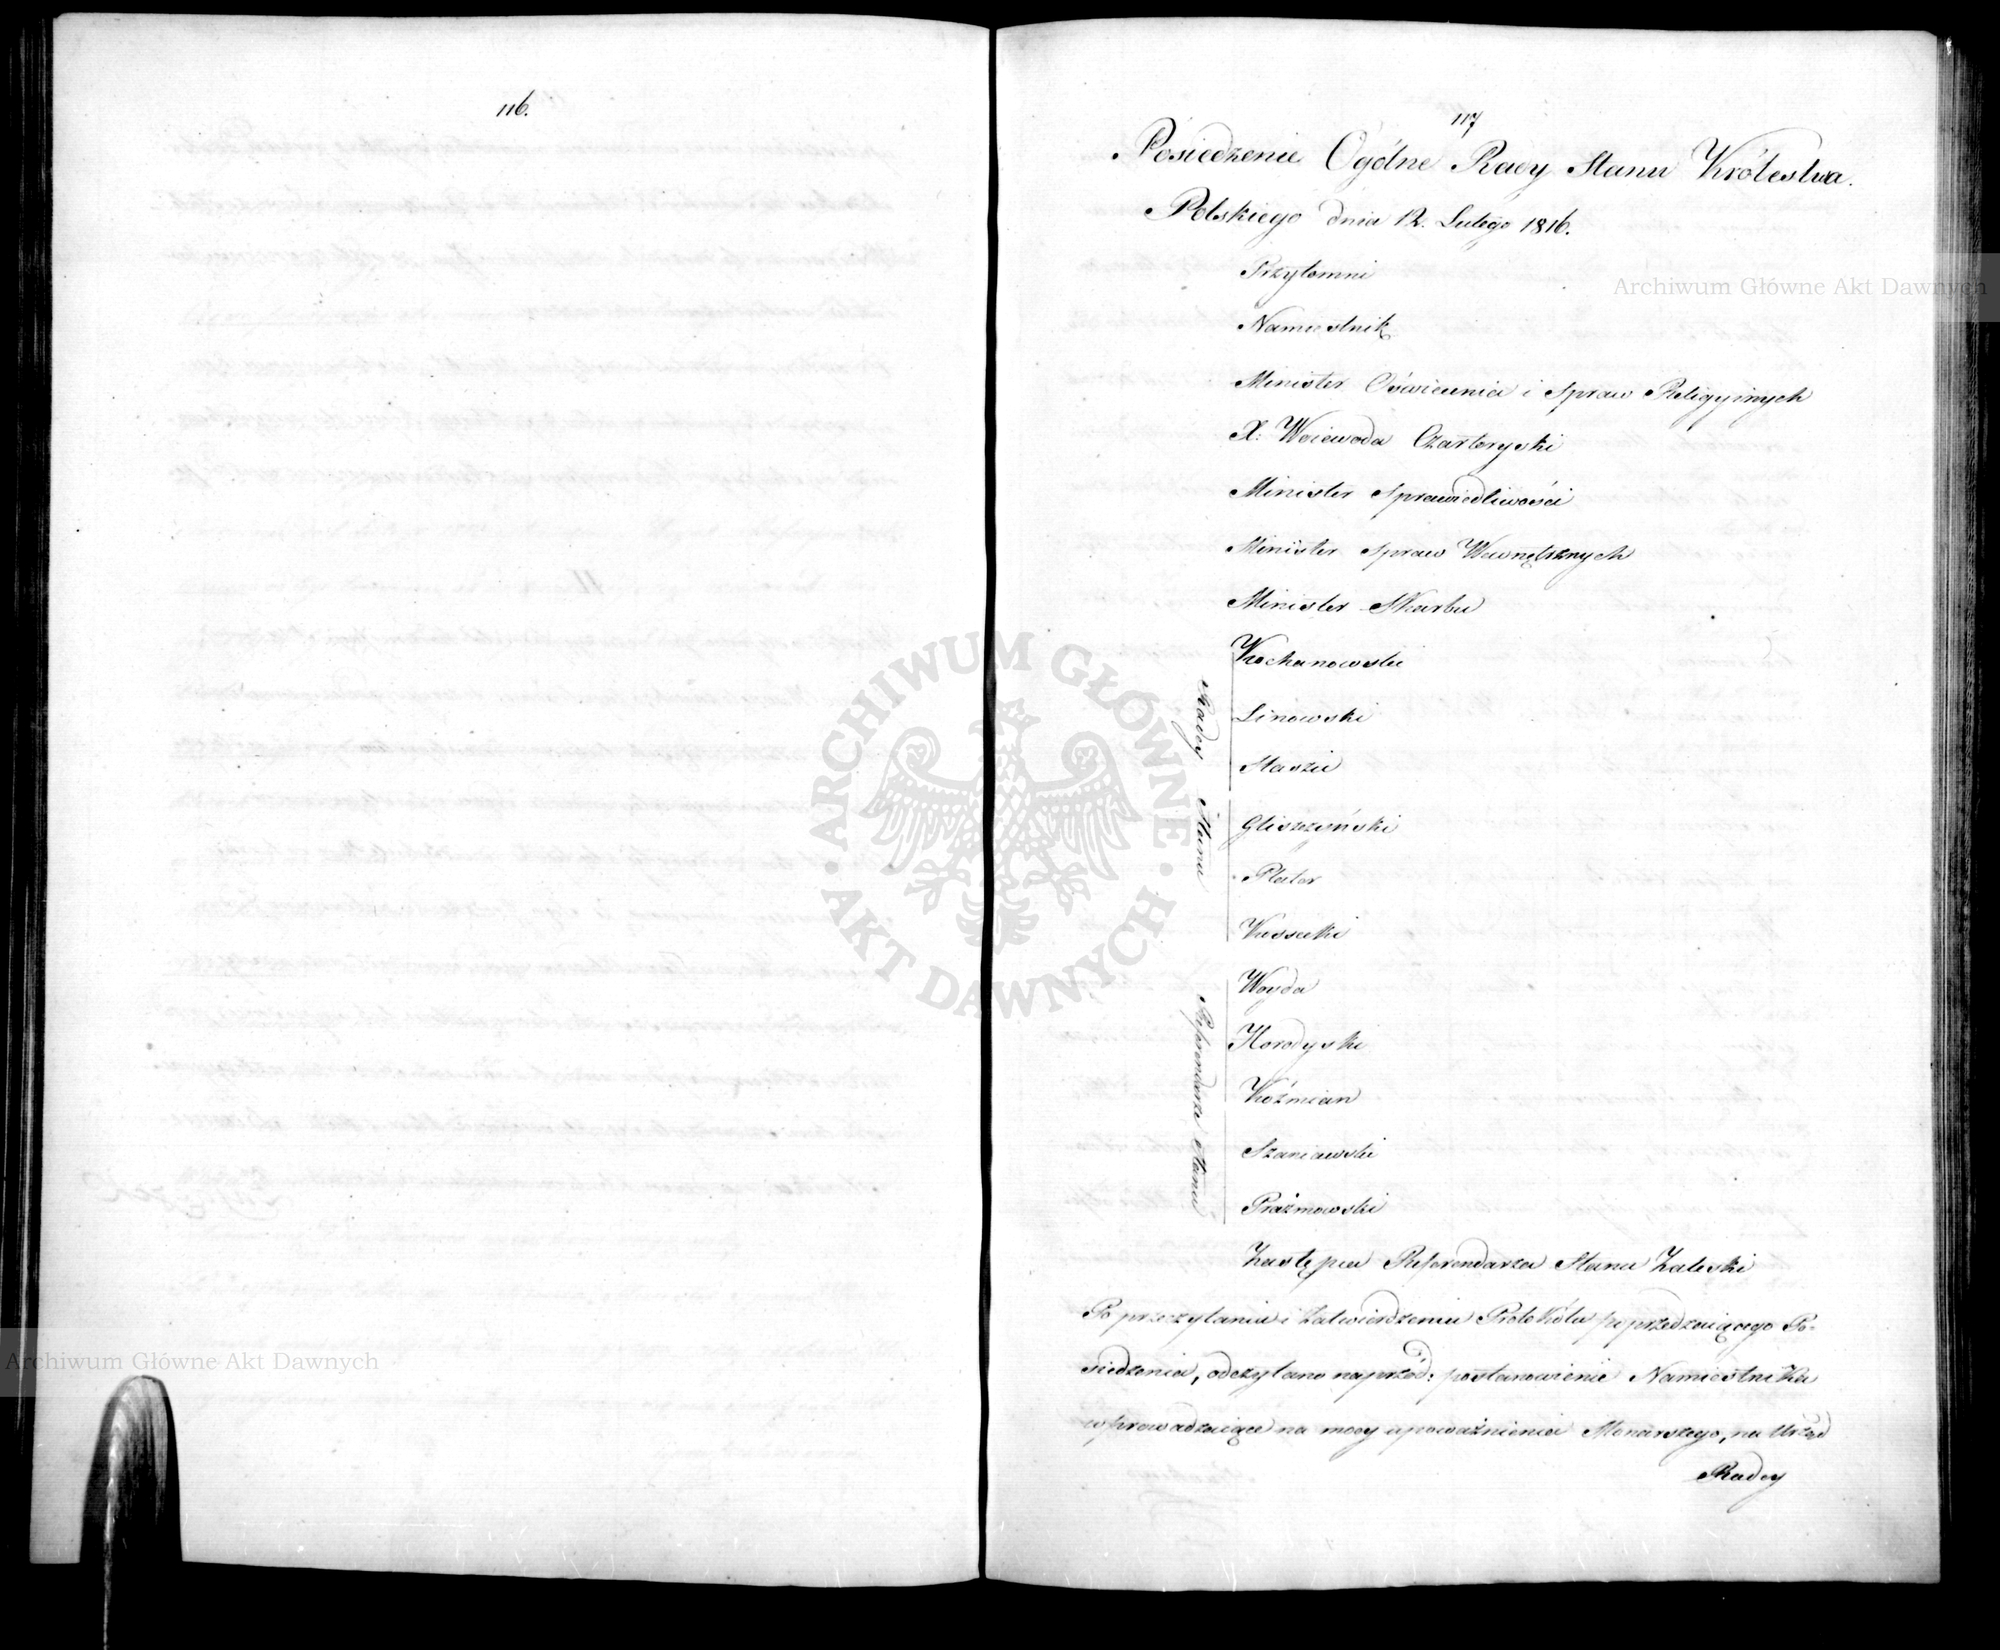 116.
117
Posiedzenie Ogólne Rady Stanu Królestwa
Polskiego dnia 12. Lutego 1816.
Przytomni
Namiestnik
Minister Oświecenia i Spraw Religyinych
X: Woiewoda Czartoryski
Minister Sprawiedliwości
Minister Spraw Wewnętrznych
Minister Skarbu
Radcy Stanu
Kochanowski
Linowski
Staszic
Gliszczyński
Plater
Kossecki
Referendarze Stanu
Woyda
Horodyski
Koźmian
Szaniawski
Prażmowski
Zastępca Referendarza Stanu Zaleski
Po przeczytaniu i zatwierdzeniu Protokółu poprzedzaiącego Po-
siedzenia, odczytano naprzód: postanowienie Namiestnika
wprowadzaiące na mocy upoważnienia Monarszego, na Urząd
Radcy
Archiwum Główne Akt Dawnych
Archiwum Główne Akt Dawnych
ARCHIWUM GŁÓWNE AKT DAWNYCH